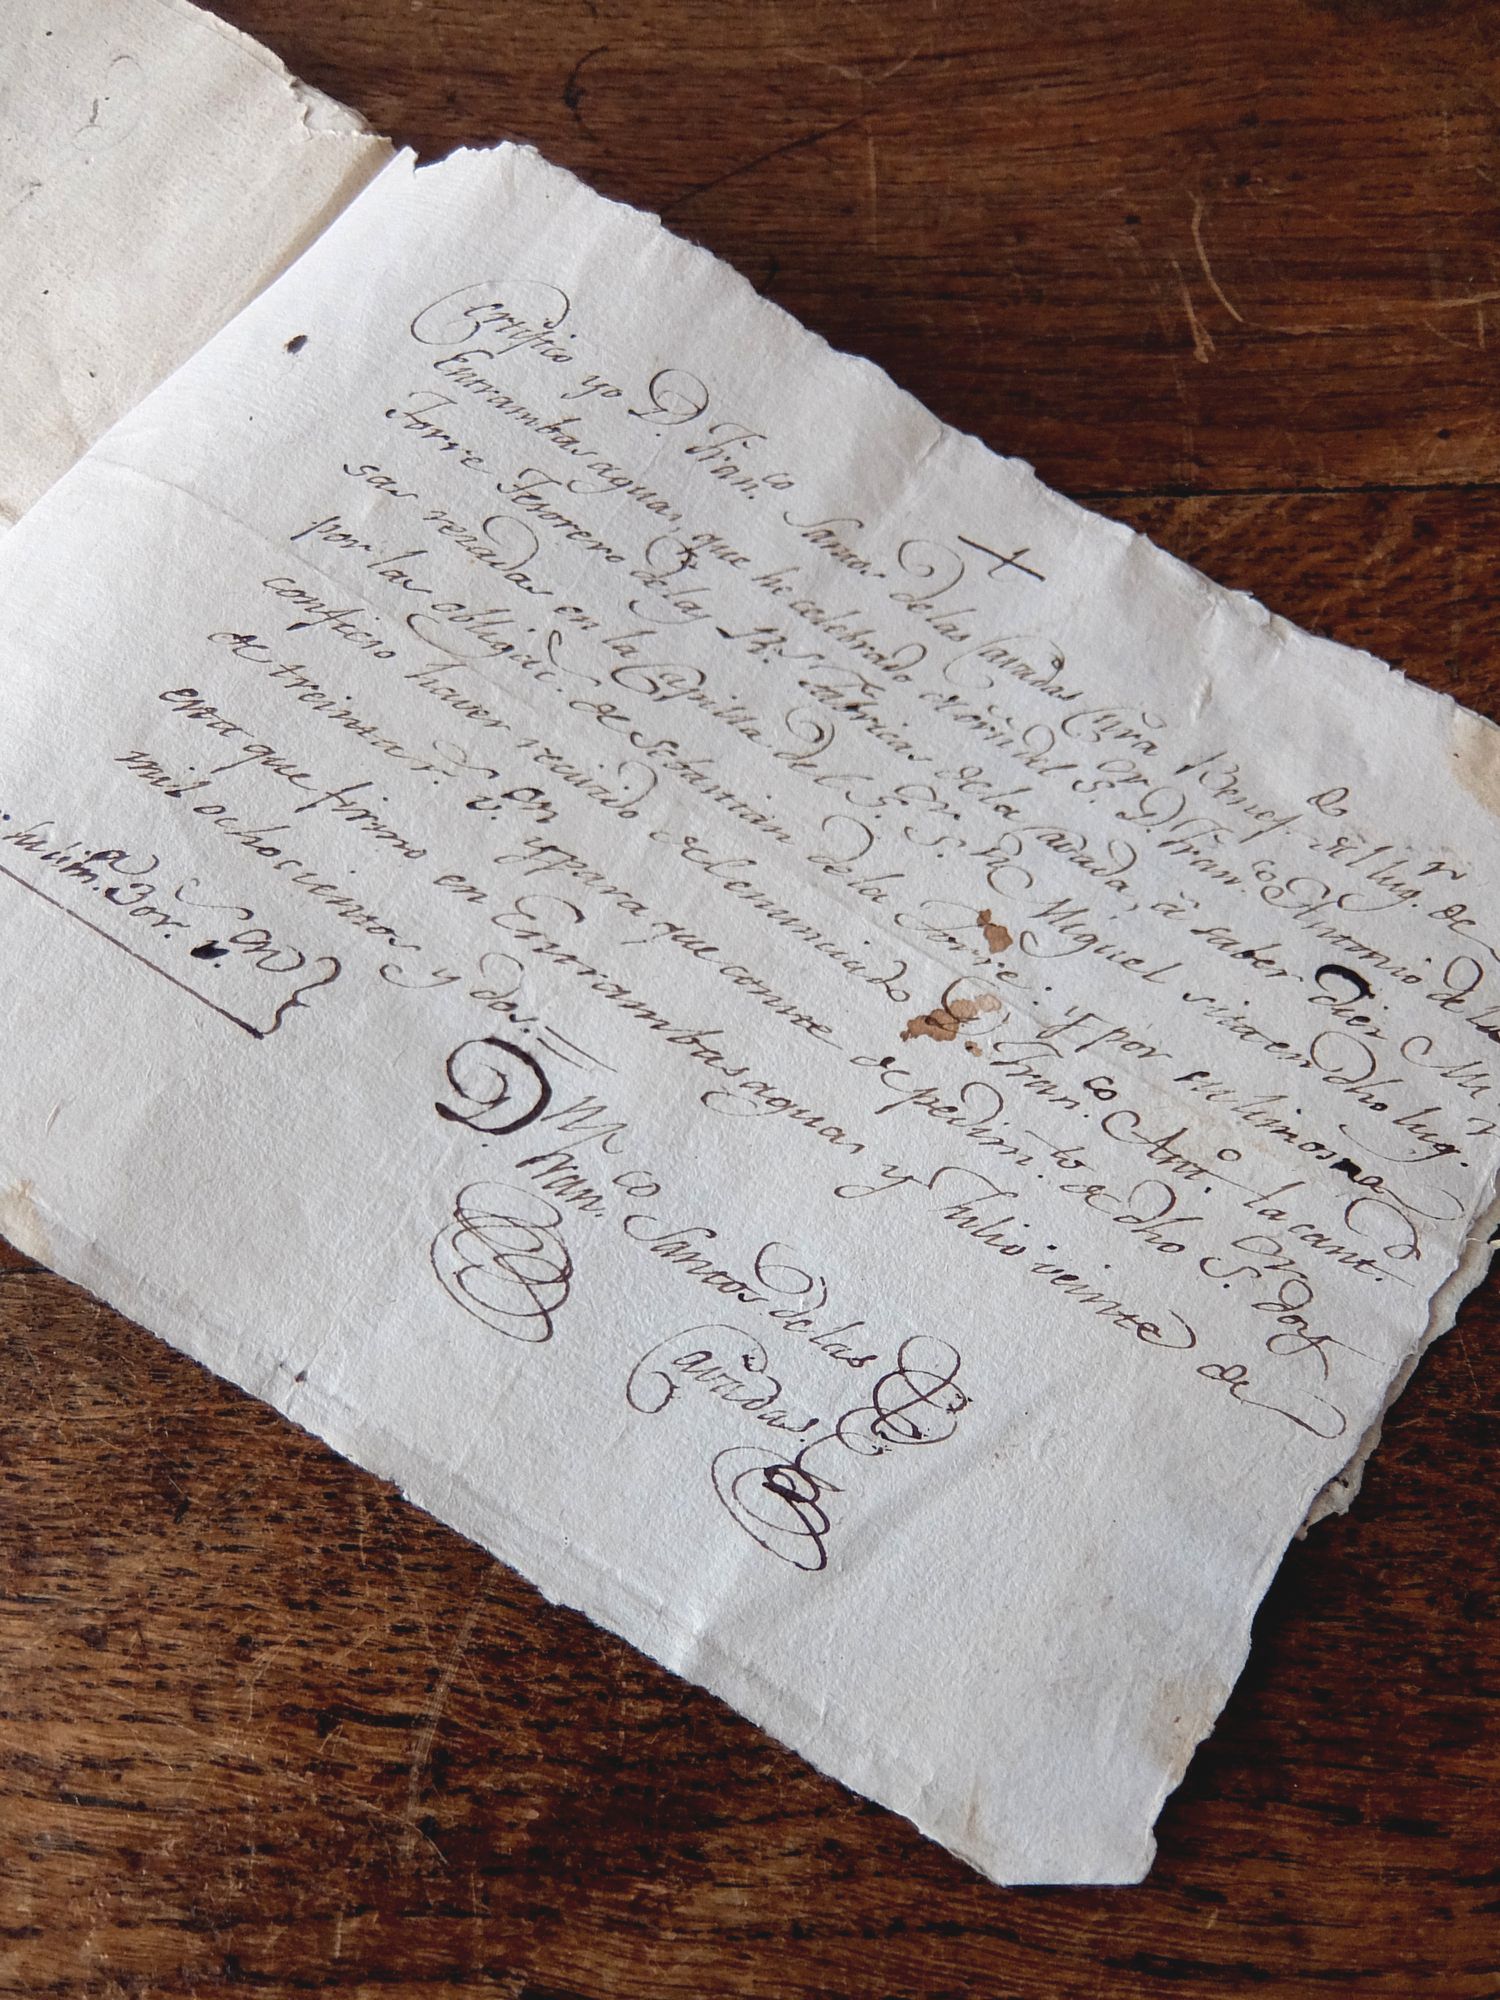 Certifico yo D. Fran.co Santos de las Cavadas Cura Benef.do del lug.r de
Entrambasaguas, que he celebrado de orñ del S.or D. Fran.co Antonio de la
Torre Tesorero de las R.s Fabricas de la Cavada, â saber Diez Mi
sas rezadas en la Capilla del S.or S.n Miguel sita en dho lug.r
por las obligac.s de Sebastian de la Torre: y por su limosna
confieso haver recivido del enunciado D. Fran.co Ant.o la cant.d
de treinta r.s v.on y para que conste de pedim.to de dho S.or doy
esta que firmo en Entrambasaguas y Julio veinte de
mil ochocientos y dos.=
D. Fran.co Santos de las
Cavadas.
Limm.a 30 r.s v.on